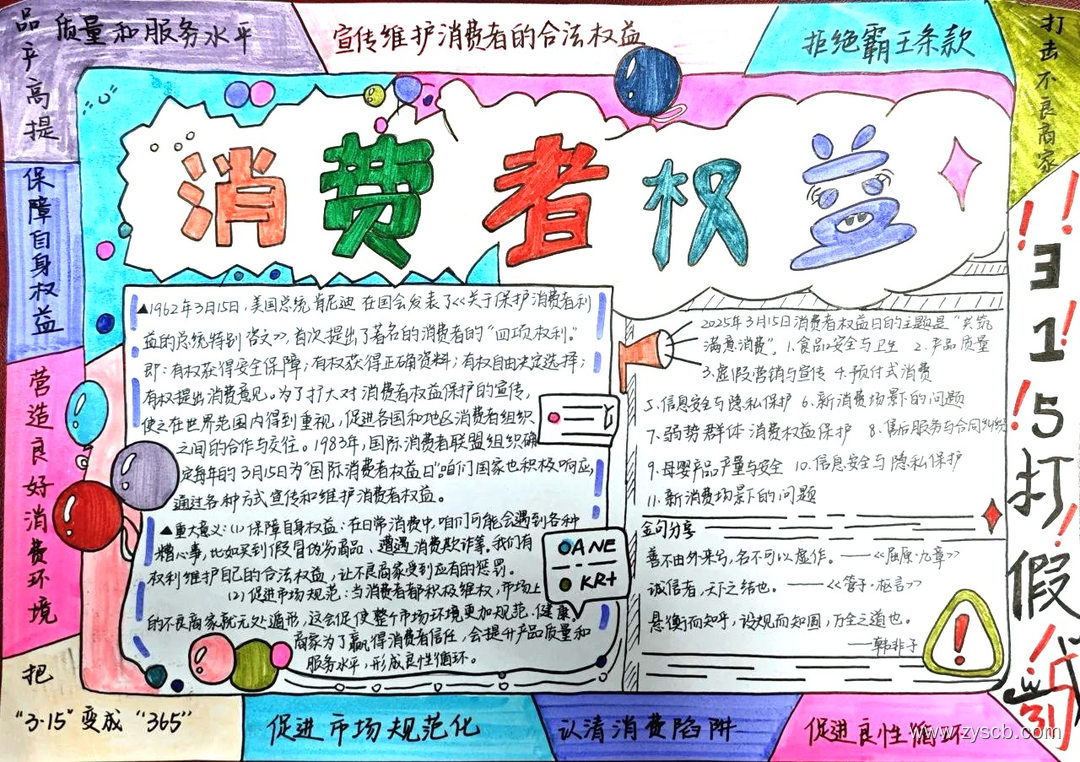 品
乎
高
提
质量和服务水平
宣传维护消费者的合法权益
拒绝霸王条款
打击不良商家
保障自身权益
营造良好消费环境
消费者权益
▲1962年3月15日，美国总统肯尼迪 在国会发表了<<关于保护消费者利
益的总统特别咨文>>，首次提出了著名的消费者的“四项权利”。
即：有权获得安全保障；有权获得正确资料；有权自由决定选择；
有权提出消费意见。为了扩大对消费者权益保护的宣传，
使之在世界范围内得到重视，促进各国和地区消费者组织
之间的合作与交往。1983年，国际消费者联盟组织确
定每年的3月15日为“国际消费者权益日”。咱们国家也积极响应，
通过各种方式宣传和维护消费者权益。
▲重大意义：(1) 保障自身权益：在日常消费中，咱们可能会遇到各种
糟心事，比如买到假冒伪劣商品、遭遇消费欺诈等。我们有
权利维护自己的合法权益，让不良商家受到应有的惩罚。
(2) 促进市场规范：当消费者都积极维权，市场上
的不良商家就无处遁形，这会促使整个市场环境更加规范、健康。
商家为了赢得消费者信任，会提升产品质量和
服务水平，形成良性循环。
ANE
KR+
2025年3月15日消费者权益日的主题是“共筑
满意消费”。1.食品安全与卫生 2.产品质量
3.虚假营销与宣传 4.预付式消费
5.信息安全与隐私保护 6.新消费场景下的问题
7.弱势群体消费权益保护 8.售后服务与合同纠纷
9.母婴产品产量与安全 10.信息安全与隐私保护
11.新消费场景下的问题
金句分享
善不由外来兮，名不可以虚作。——<<屈原·九章>>
诚信者，天下之结也。——<<管子·枢言>>
悬衡而知平，设规而知圆，万全之道也。
——韩非子
!!
315打假
!
把
“3·15”变成“365”
促进市场规范化
认清消费陷阱
促进良性循环
www.zyscb.com